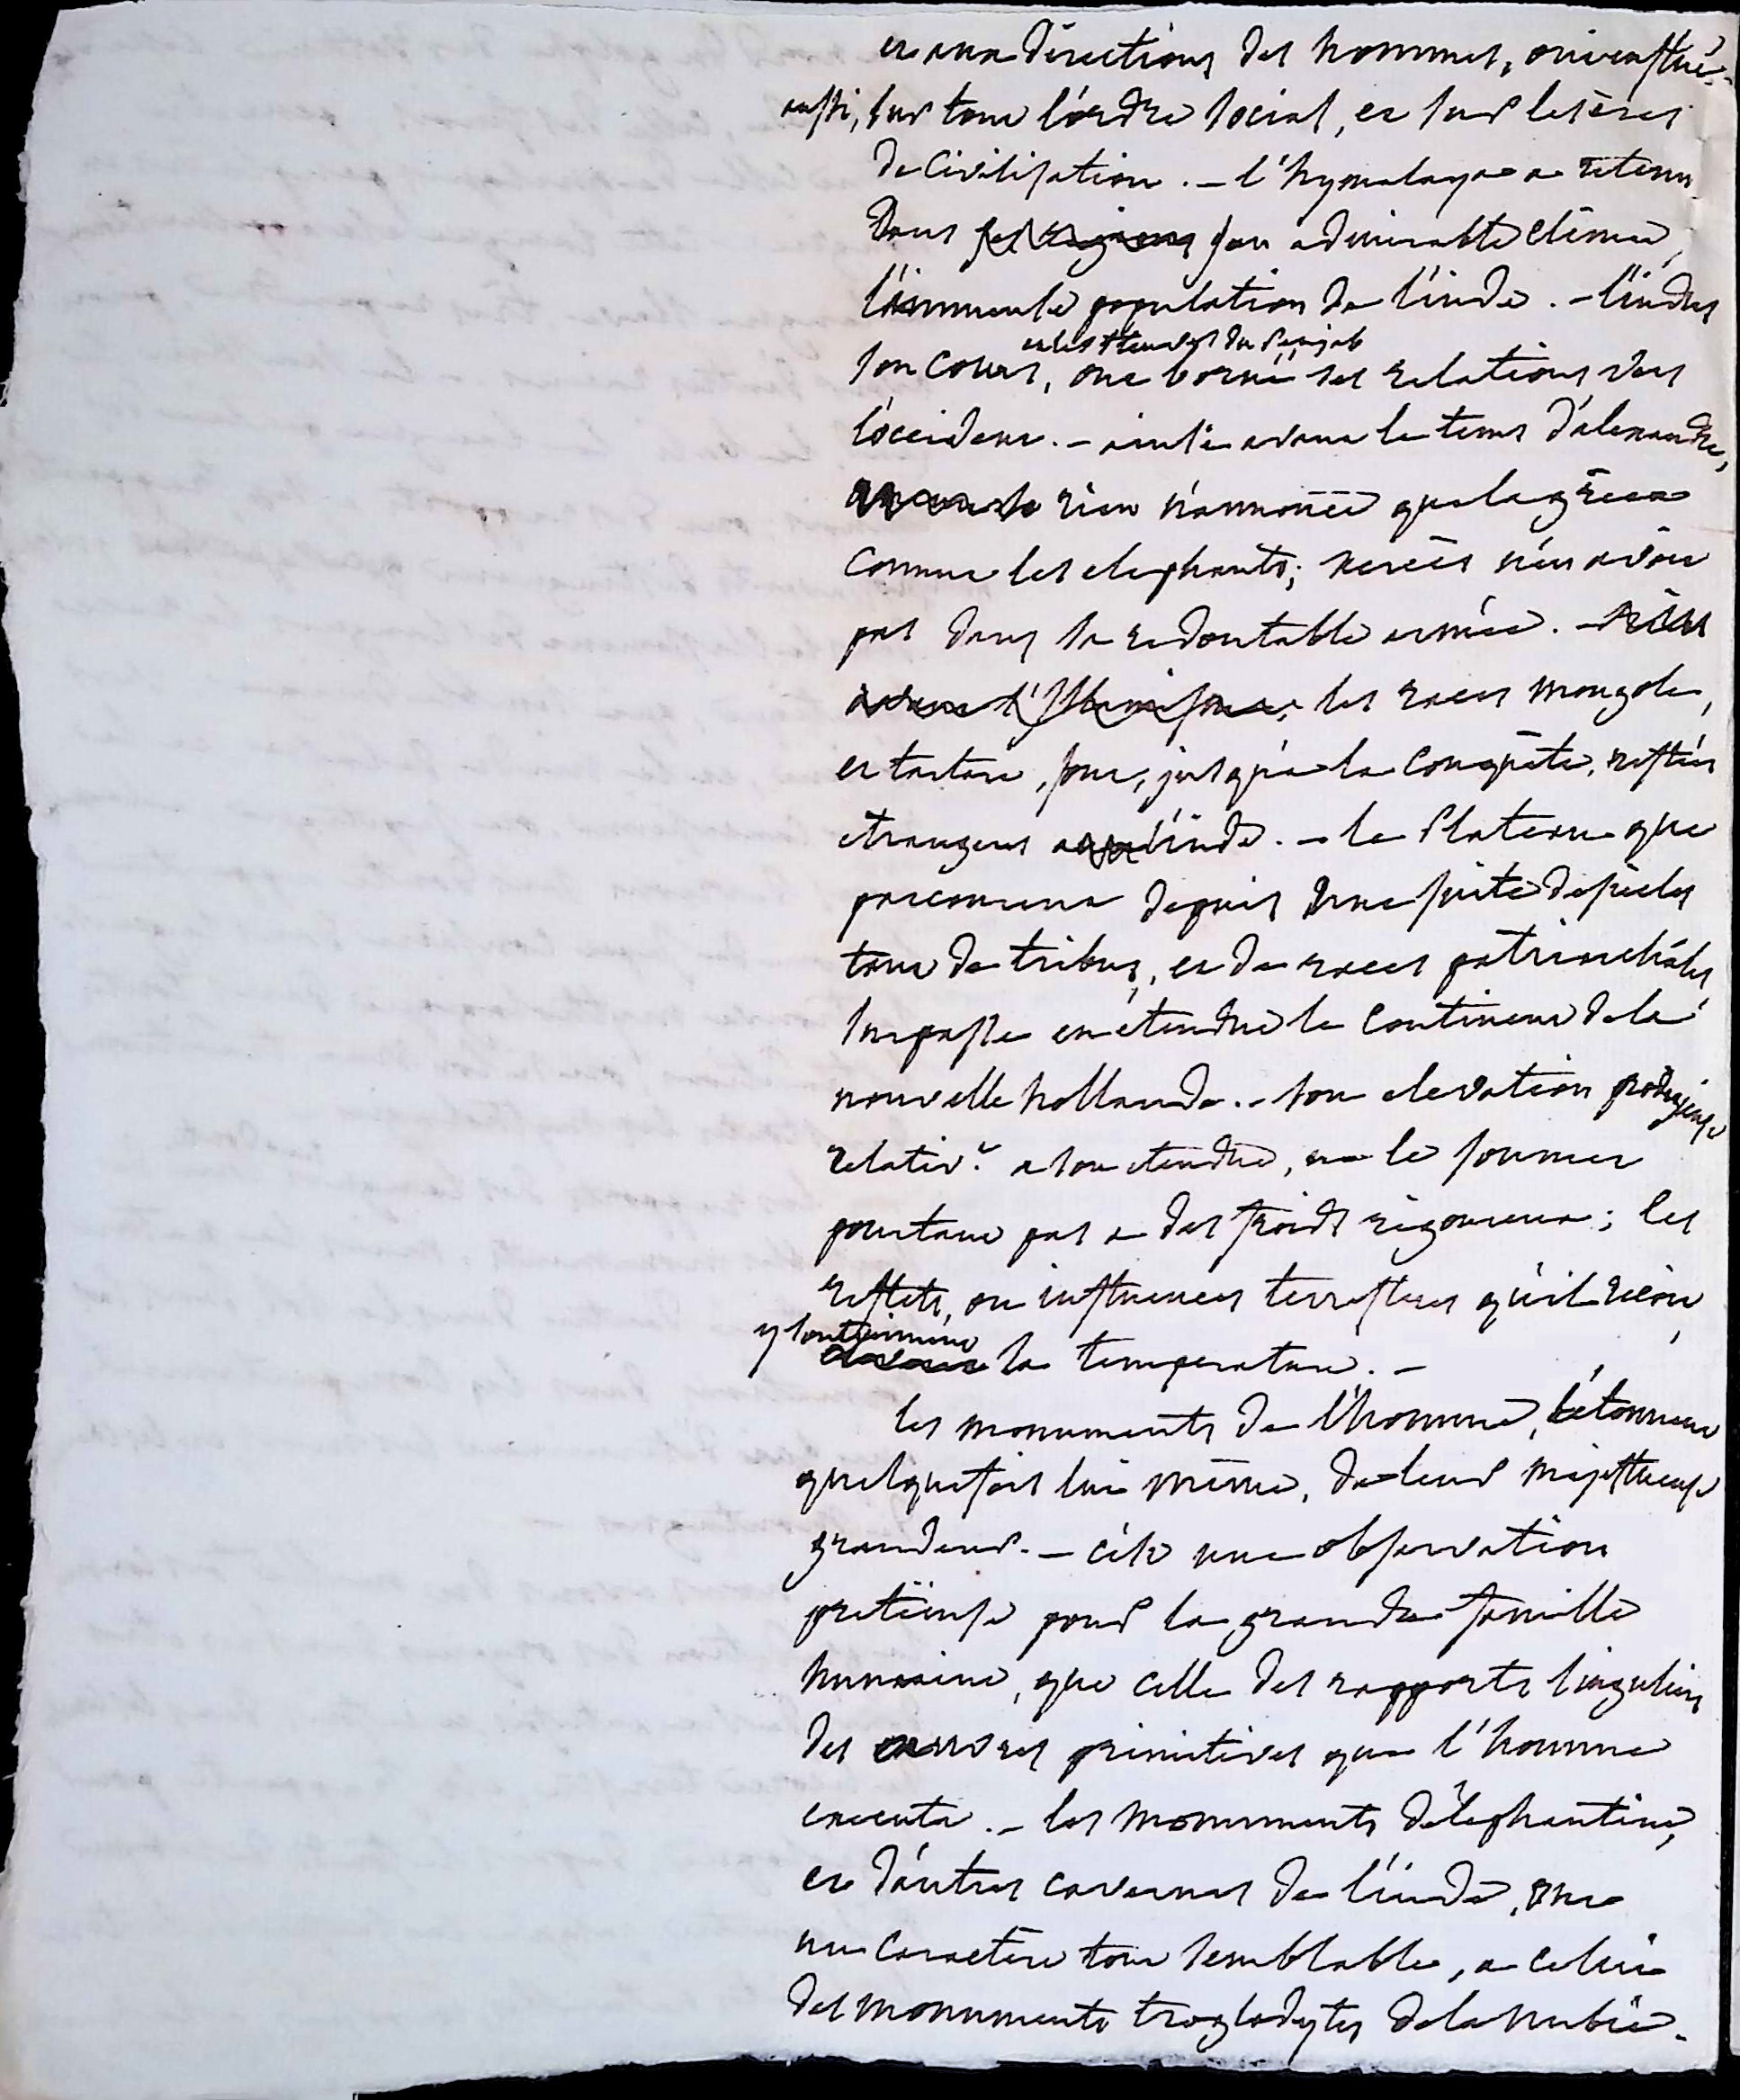 et aux directions des hommes, ont influé
aussi, sur tout l'ordre social, et sur les êres
de Civilisation. - l'hymalaya a retenu
dans ses régions son admirable climat,
l'immense population de l'inde. - l'indus
et les fleuves du Penjab
son cours, ont borné ses relations vers
l'occident. - ainsi avant le tems d'alexandre,
rien n'annonce que la grèce
connut les elephants; xercès n'en avoit
pas dans sa redoutable armée. - 
avant l'islamisme, les races mongole,
et tartare, sont, jusqu'à la conquête, restées
etrangeres a l'inde. - le Plateau que
parcourent depuis une suite de siècles
tant de tribus, et de races patriarchales
surpasse en étendue le continent de la
nouvelle hollande. - son elevation prodigieuse
relativ.t a son etendue, ne le soumet
pourtant pas a des froids rigoureux; les
reflets, ou influences terrestres qu'il reçoit,
y soutiennent
la temperature. -
les monuments de l'homme, l'étonnent
quelquefois lui même, de leur majestueuse
grandeur. - c'est une observation
pretieuse pour la grande famille
humaine, que celle des rapports singuliers
des œuvres primitives que l'homme
executa. - les monuments d'élephantine,
et d'autres cavernes de l'inde, ont
un caractère tout semblable, a celui
des monuments troglodytes de la nubie.